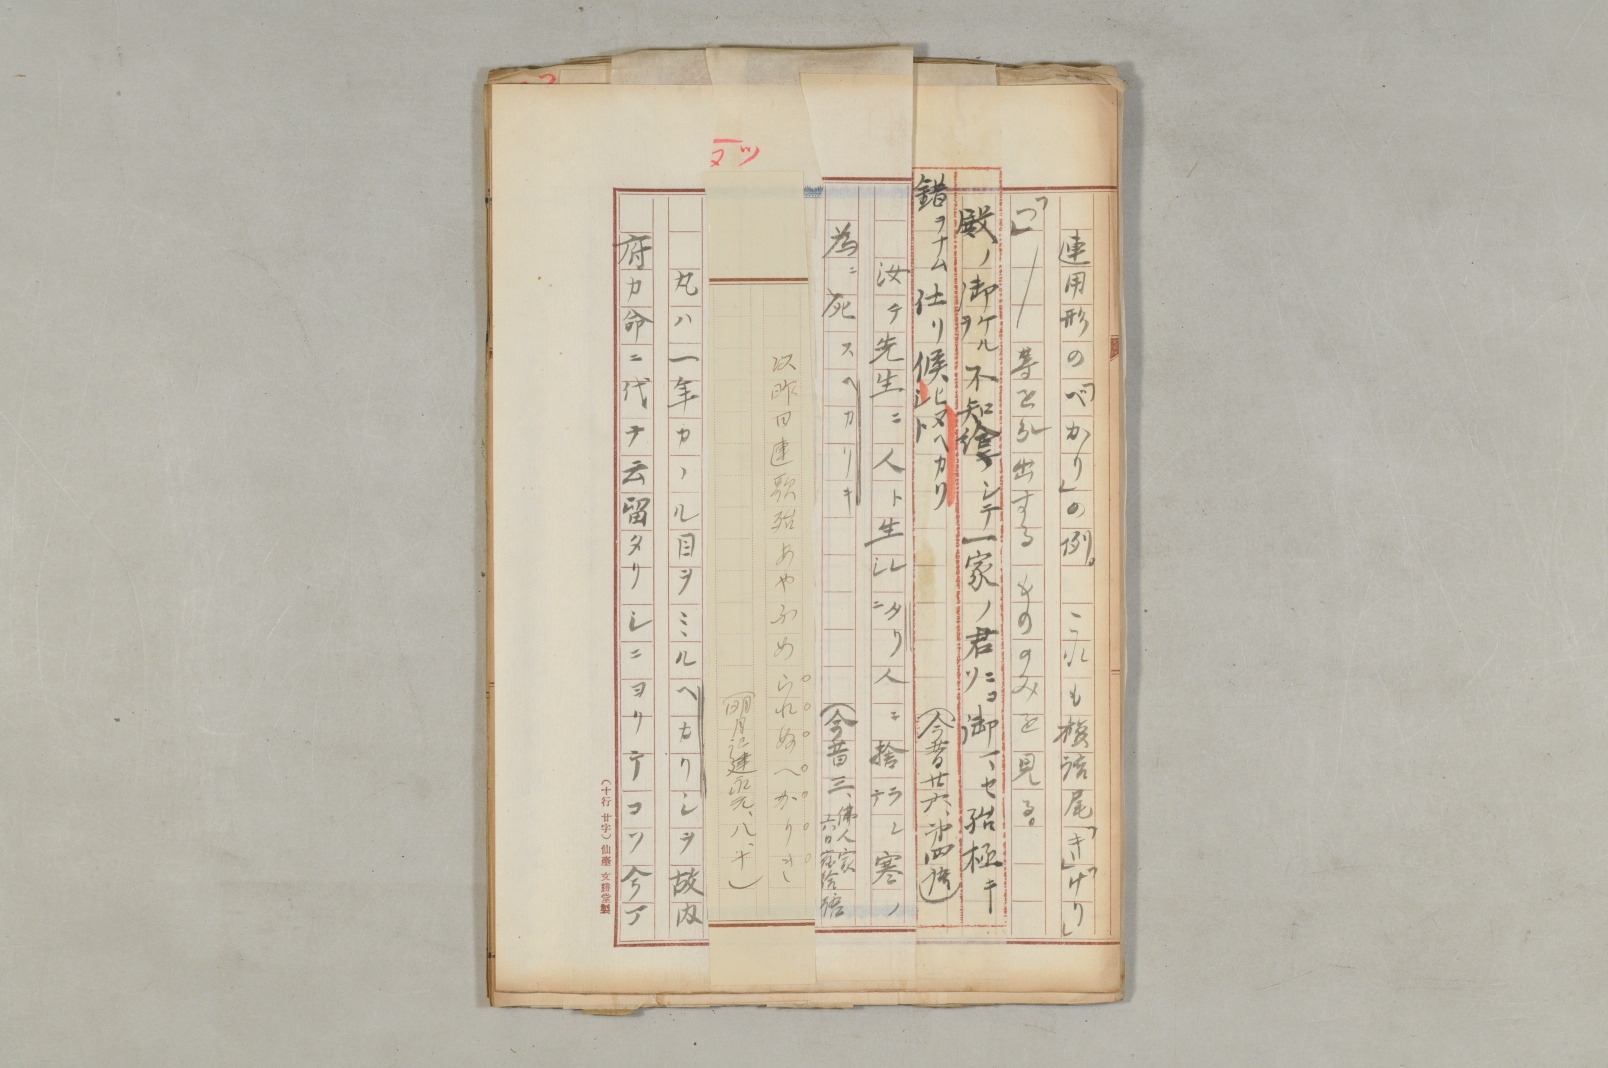 連用形の「べかり」の例。これも接続語尾「き」「けり」
「つ」等を引出するもののみを見る。
殿ノ御ケルヲ不知給ズシテ一家ノ君ソニコ御マセ殆極キ
錯ヲナム仕リ候ヒヌヘカリシト (今昔廿六、第四語)
汝チ先生ニ人ト生レシニタリ人ニ捨ラレテ寒ノ
為ニ死スヘカリキ (今昔三、
以昨日連歌殆あやふめられぬへかりき
(明月記建永元、八、十)
丸ハ一年カヽル目ヲミルヘカリシヲ故内
府カ命ニ代テ云留タリシニヨリテコソ今マ
又ツ
(十行 廿字) 仙臺 文勝堂製